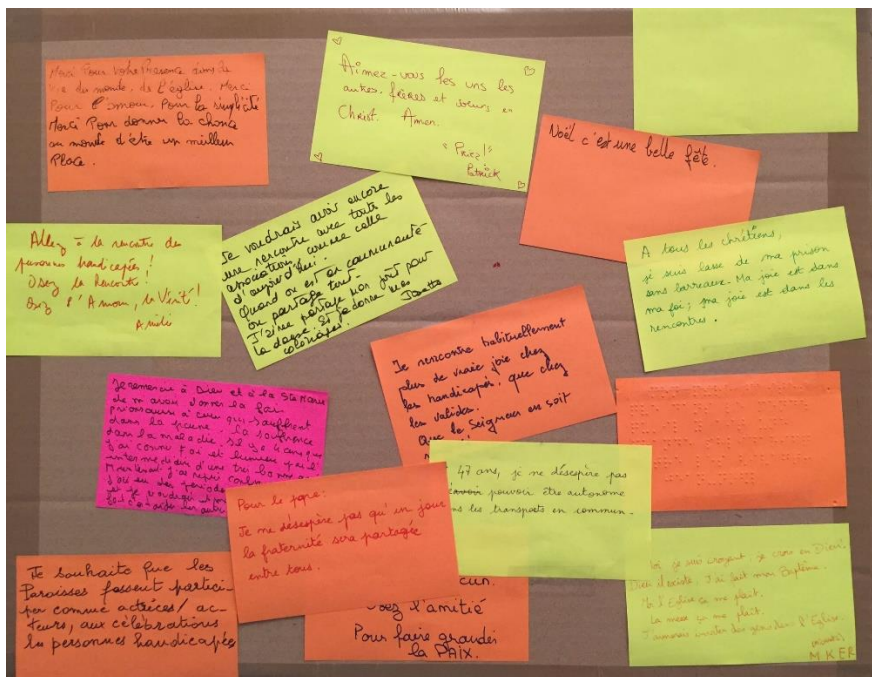 Merci Pour votre Présence dans la
vie du monde, de l'église. Merci
Pour l'amour, Pour la simplicité
Merci Pour donner la chance
au monde d'être un meilleur
Place.
Aimez-vous les uns les
autres. frères et soeurs en
Christ. Amen.
"Priez!"
Patrick
Noël c'est une belle fête.
Allez à la rencontre des
personnes handicapées!
Osez la Rencontre!
Osez l'Amour, la Vérité!
Je voudrais avoir encore
une rencontre avec toute les
association, comme celle
d'aujourd'hui.
Quand on est en communauté
on partage tout.
la danse. Et je donne mes
coloriages.
Josette
A tous les chrétiens,
je suis lasse de ma prison
sans barreaux. Ma joie est dans
ma foi; ma joie est dans les
rencontres.
Je rencontre habituellement
plus de vraie joie chez
les handicapés, que chez
les valides.
Que le Seigneur en soit
Je remercie à Dieu et à la Ste Marie
de m'avoir donner la foi
qui souffrent
dans la peine. la souffrance
dans la maladie.
j'ai connu Foi et lumière
47 ans, je ne désespère pas
pouvoir être autonome
les transports en commun-
Pour le pape:
Je ne désespère pas qu'un jour
la fraternité sera partagée
entre tous.
Je souhaite que les
Paroisses fassent partici-
per comme actrices/ ac-
teurs, aux célébrations
les personnes handicapées
l'amitié
Pour faire grandir
la PAIX.
Moi je suis croyant, je crois en Dieu.
Dieu il existe, j'ai fait mon Baptême.
Moi l'Eglise ça me plait.
La messe ça me plait.
J'aimerais inviter des gens dans l'Eglise.
M KER